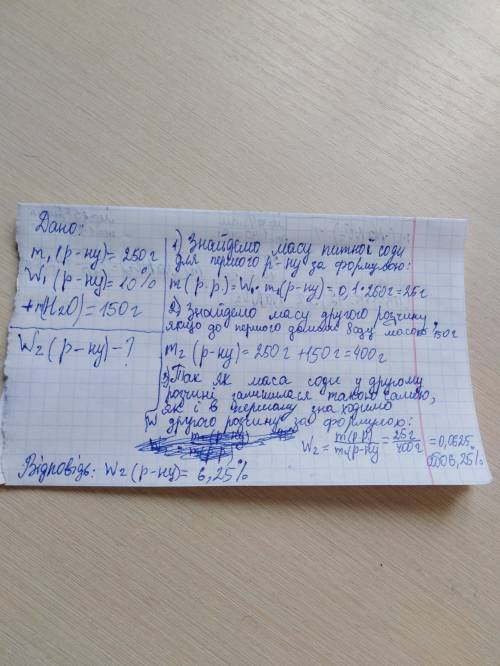 Дано:
m₁(р-ну)=250г
W₁(р-ну)=10%
+m(H2O)=150г
W₂(р-ну)-?
1) Знайдемо масу питної соди
для першого р-ну за формулою:
m(р.р.)=W₁·m₁(р-ну)=0,1·250г=25г
2) Знайдемо масу другого розчину
якщо до першого долили воду масою 150г
m₂(р-ну)=250г+150г=400г
3) Так як маса соди у другому
розчині залишилася такою самою,
як і в першому знаходимо
W другого розчину за формулою:
W₂=m(р.р)/m(р-ну)=25г/400г=0,0625
або 6,25%
Відповідь: W₂(р-ну)=6,25%